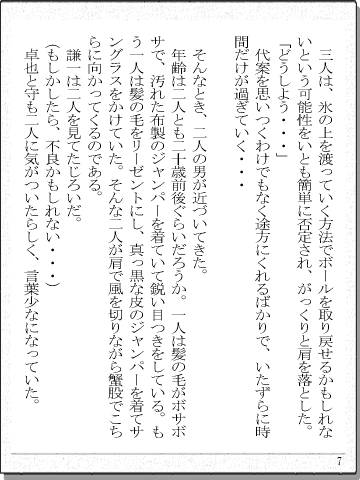 三人は、氷の上を渡っていく方法でボールを取り戻せるかもしれな
いという可能性をいとも簡単に否定され、がっくりと肩を落とした。
「どうしよう・・・」
代案を思いつくわけでもなく途方にくれるばかりで、いたずらに時
間だけが過ぎていく・・・
そんなとき、二人の男が近づいてきた。
年齢は二人とも二十歳前後ぐらいだろうか。一人は髪の毛がボサボ
サで、汚れた布製のジャンパーを着ていて鋭い目つきをしている。も
う一人は髪の毛をリーゼントにし、真っ黒な皮のジャンパーを着てサ
ングラスをかけていた。そんな二人が肩で風を切りながら蟹股でこち
らに向かってくるのである。
謙一は二人を見てたじろいだ。
（もしかしたら、不良かもしれない・・・）
卓也と守も二人に気がついたらしく、言葉少なになっていた。
7